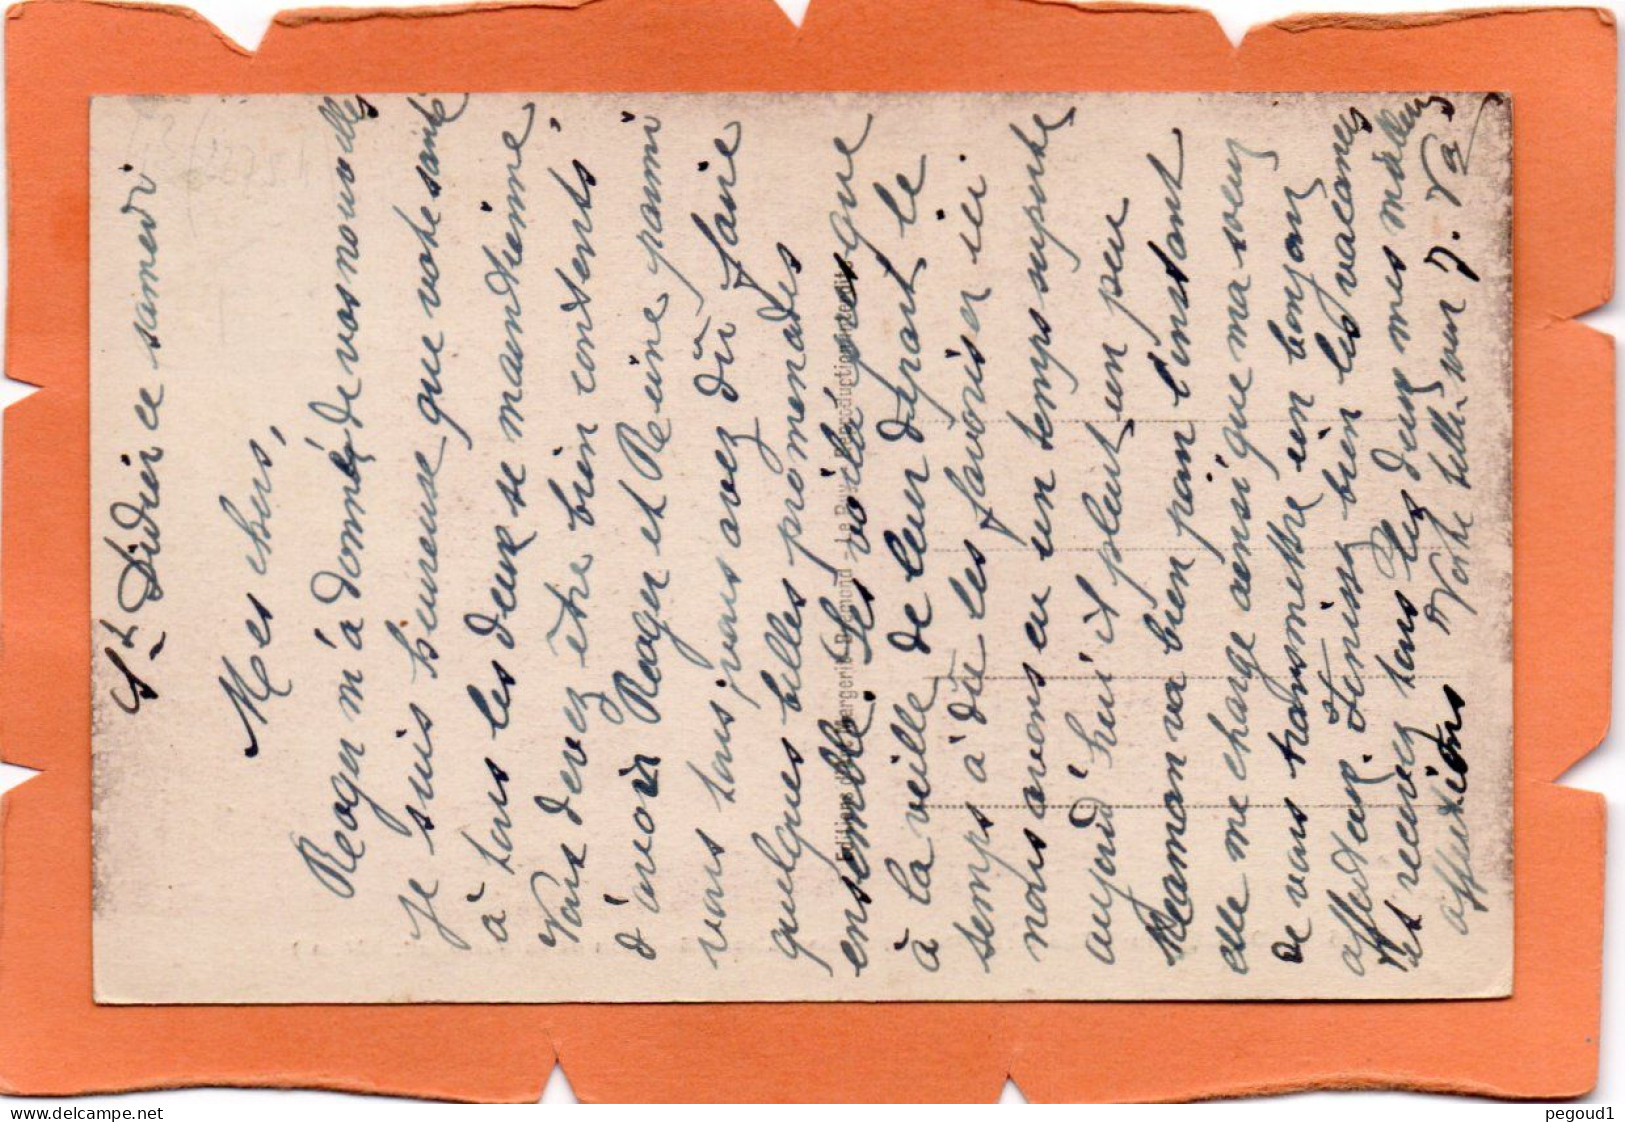 St Didier ce samedi
Mes chers,
Roger m'a donné de vos nouvelles
je suis heureuse que votre santé
à tous les deux se maintienne
Vous devez être bien contents,
d'avoir Roger et Reine parmi
vous tous, vous avez dû faire
quelques belles promenades
ensemble. Les voilà presque
à la veille de leur départ le
temps à dû les favoriser ici.
nous avons eu un temps superbe
aujourd'hui il pleut un peu
Maman va bien pour l'instant
elle me charge ainsi que ma sœur
de vous transmettre un bonjour
affectueux. Finissez bien les vacances
et recevez tous les deux mes meilleurs
affections Votre belle sœur J.
Editions d'Art Margerit-Brémond - Le Puy. Reproduction Interdite
pegoud1